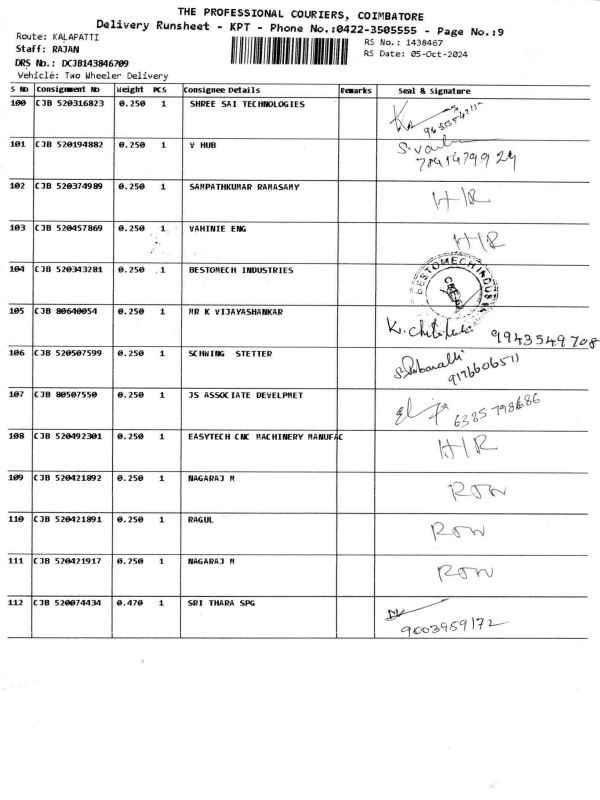 THE PROFESSIONAL COURIERS, COIMBATORE
Delivery Runsheet - KPT - Phone No.:0422-3505555 - Page No.:9
Route: KALAPATTI
RS No.: 1438467
Staff: RAJAN
RS Date: 05-Oct-2024
DRS No.: DCJB143846709
Vehicle: Two Wheeler Delivery
S No Consignment No Weight PCS Consignee Details Remarks Seal & Signature
100 CJB 520316823 0.250 1 SHREE SAI TECHNOLOGIES
101 CJB 520194882 0.250 1 V HUB
102 CJB 520374989 0.250 1 SAMPATHKUMAR RAMASAMY H/R
103 CJB 520457869 0.250 1 VAHINIE ENG H/R
104 CJB 520343281 0.250 1 BESTOMECH INDUSTRIES BESTOMECH INDUS
105 CJB 80640054 0.250 1 MR K VIJAYASHANKAR 9943549708
106 CJB 520507599 0.250 1 SCHWING STETTER 9176606511
107 CJB 80507550 0.250 1 JS ASSOCIATE DEVELPMET 6385798686
108 CJB 520492301 0.250 1 EASYTECH CNC MACHINERY MANUFAC H/R
109 CJB 520421892 0.250 1 NAGARAJ M
110 CJB 520421891 0.250 1 RAGUL
111 CJB 520421917 0.250 1 NAGARAJ M
112 CJB 520074434 0.470 1 SRI THARA SPG
9003959172